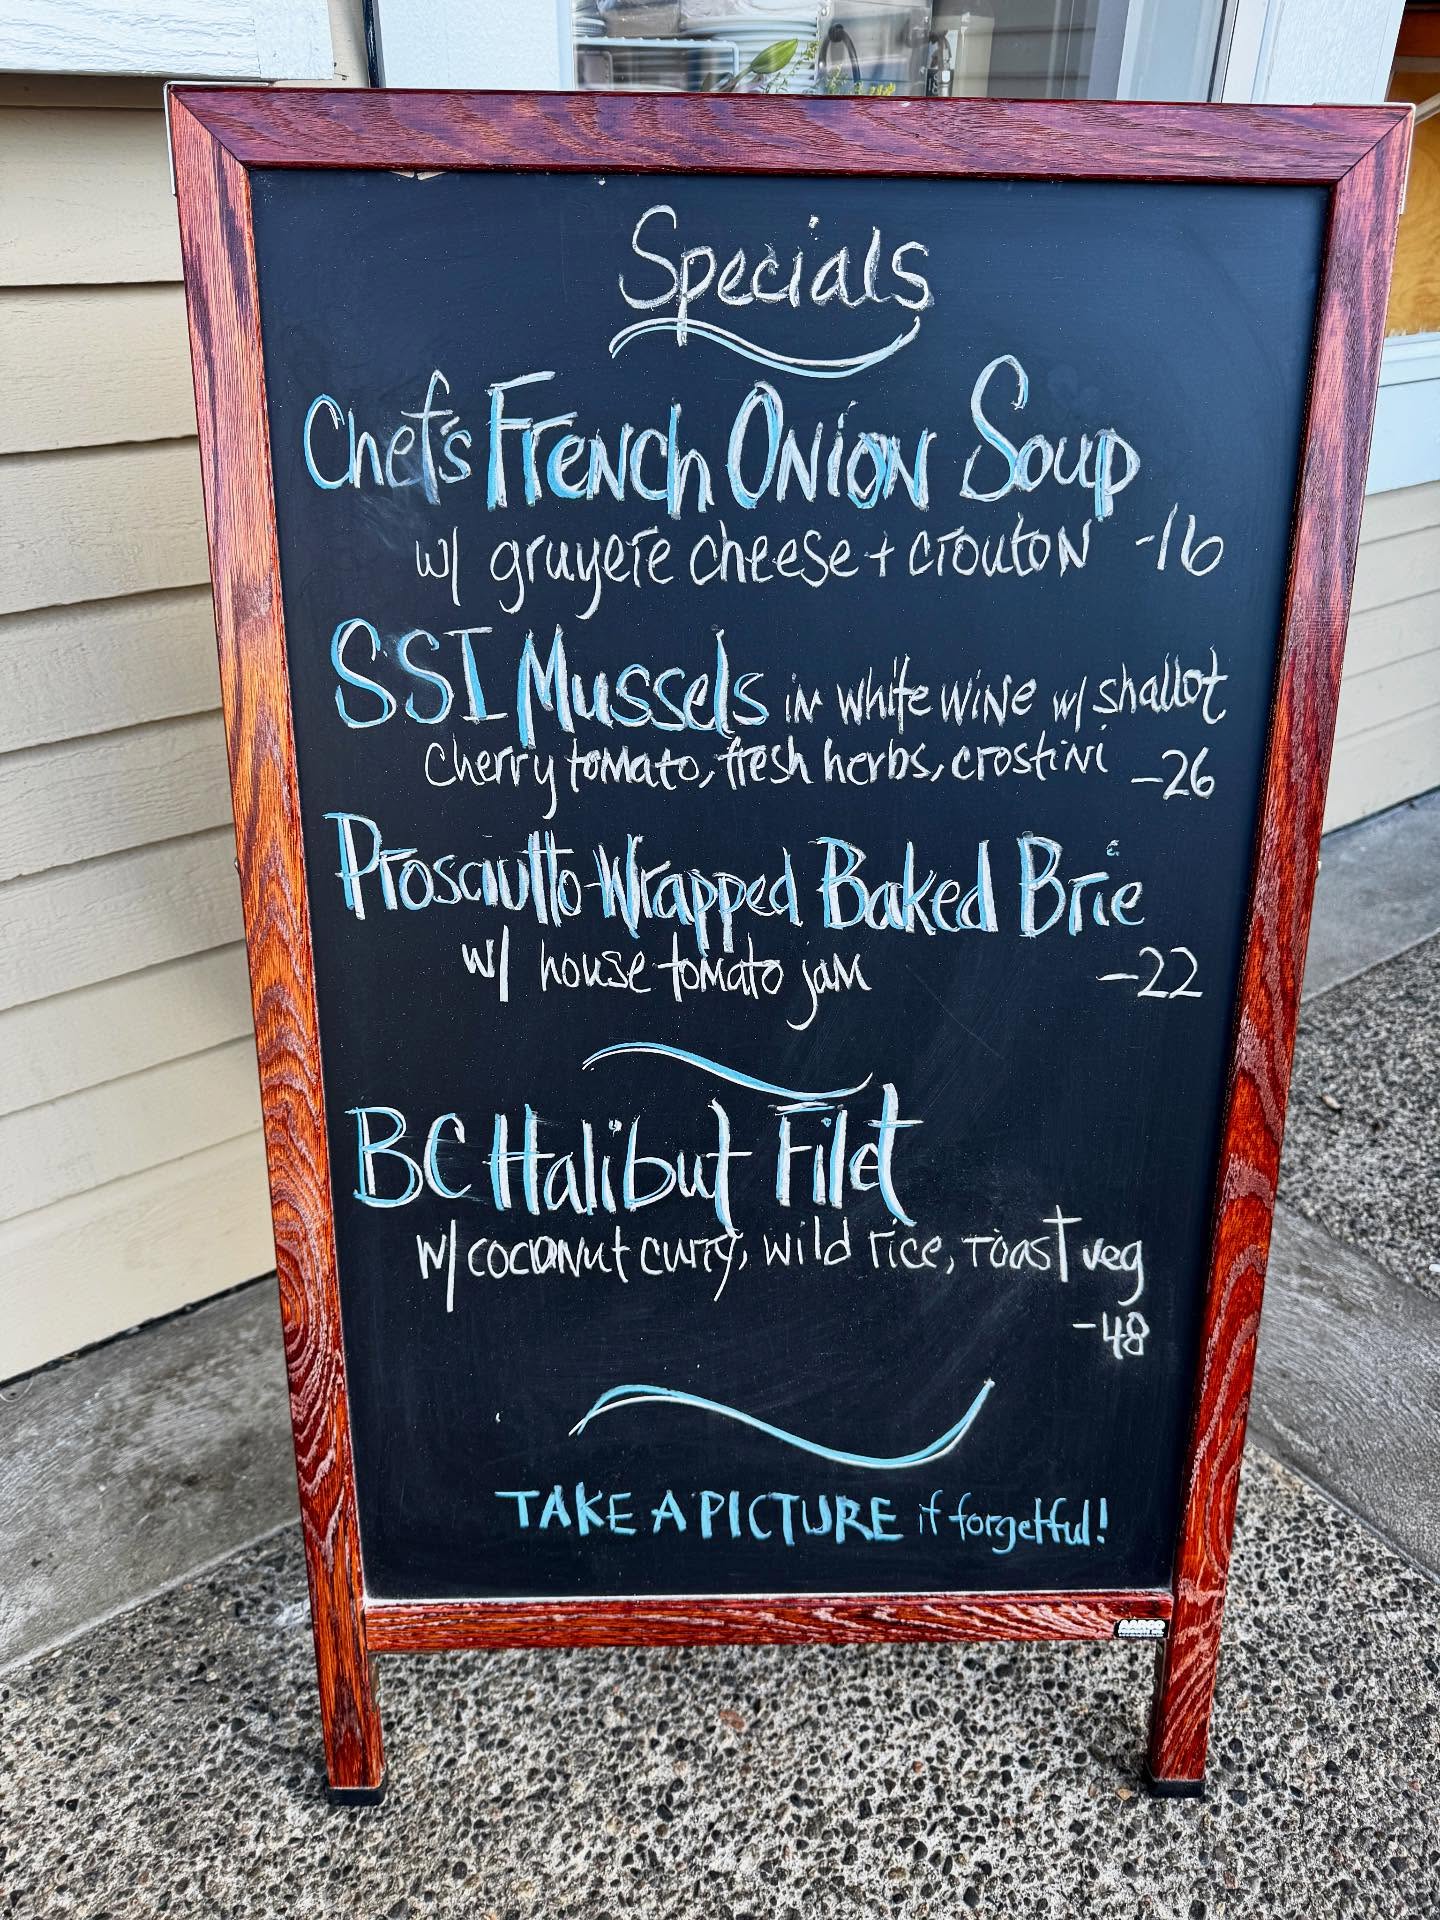 Specials
Chef's French Onion Soup
w/ gruyere cheese + crouton -16
SSI Mussels in white wine w/ shallot
cherry tomato, fresh herbs, crostini -26
Prosciutto-Wrapped Baked Brie
w/ house tomato jam -22
BC Halibut Filet
w/ coconut curry, wild rice, roast veg
-48
TAKE A PICTURE if forgetful!
AARCO